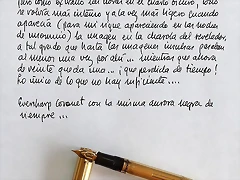 pasé como hs viendo las horas en el cuarto oscuro, todo
se volvía más intenso y a la vez más ligero cuando
aparecía (para mí sigue apareciendo en las noches
de insomnio) la imagen en la charola del revelador,
a tal grado que hasta las imágenes mientras pasaban
al menos una vez por ahí... mientras que ahora
de veinte queda una... ¡qué perdida de tiempo!
Lo único de lo que no hay suficiente...
Eversharp Coronet con la misma aurora negra de
siempre...